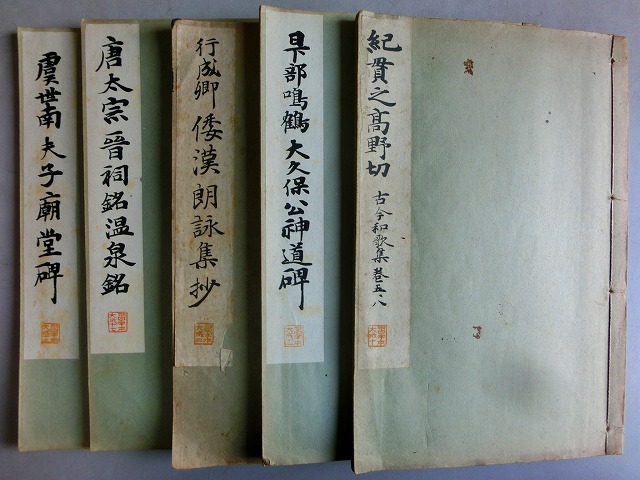 紀貫之高野切 古今和歌集 巻五、八
日下部鳴鶴 大久保公神道碑
行成卿 倭漢朗詠集抄
唐太宗 晋祠銘 温泉銘
虞世南 夫子廟堂碑